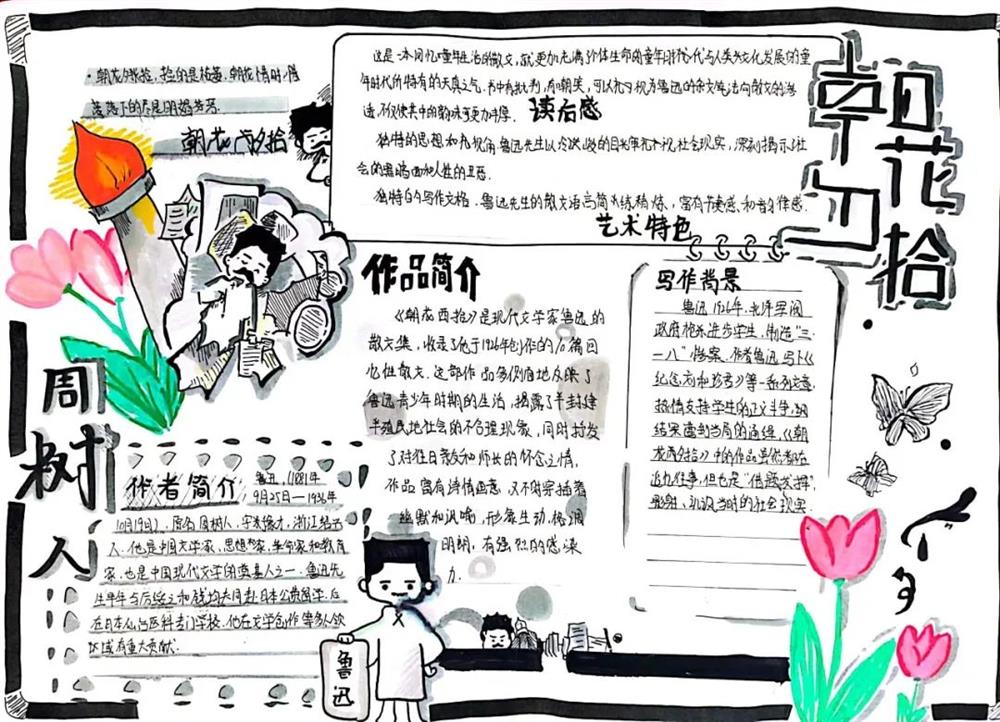 朝花夕拾
·朝花夕拾，捡的是枯萎，朝花惜时，借
落落下的尽是明褐苦涩.
朝花夕拾
这是一本回忆童年生活的散文，就更加充满了个体生命的童年时代与人类文化发展的童
年时代所特有的天真之气.书中有批判，有嘲笑，可以视为
透，不仅使其中的韵味更力丰厚.
读后感
独特的思想和
会的黑暗面和人性的丑恶.
独特的写作文格.鲁迅先生的散文语言简炼精炼，富有节奏感和音乐感.
艺术特色
作品简介
《朝花西拾》是现代文学家鲁迅的
散文集，收录了他于1926年创作的10篇回
忆性散文.这部作品多侧面地反映了
鲁迅青少年时期的生活，揭露了半封建
半殖民地社会的不合理现象，同时抒发
了对往日亲友和师长的怀念之情，
作品富有诗情画意，又不时穿插着
幽默和讽喻，形象生动，格调
明朗，有强烈的感染
力.
写作背景
鲁迅1926年，北洋军阀
政府枪杀进步学生，制造"三.
一八"惨案.作者鲁迅写下《
纪念刘和珍君》等一系列文章，
热情支持学生的正义斗争，
结果遭到当局的通缉，《朝
花西拾》中的作品虽然都在
追忆往事，但也是"借题发挥"，
影射，讥讽当时的社会现实.
周树人
作者简介
鲁迅，(1881年
9月25日—1936年
10月19日)，原名周树人，字豫才，浙江绍兴
人.他是中国文学家，思想家，革命家和教育
家.也是中国现代文学的奠基人之一.鲁迅先
生早年与厉绥之和钱均夫同赴日本公费留学，后
在日本仙台医科专门学校.他在文学创作等多个
区域有重大贡献.
鲁迅